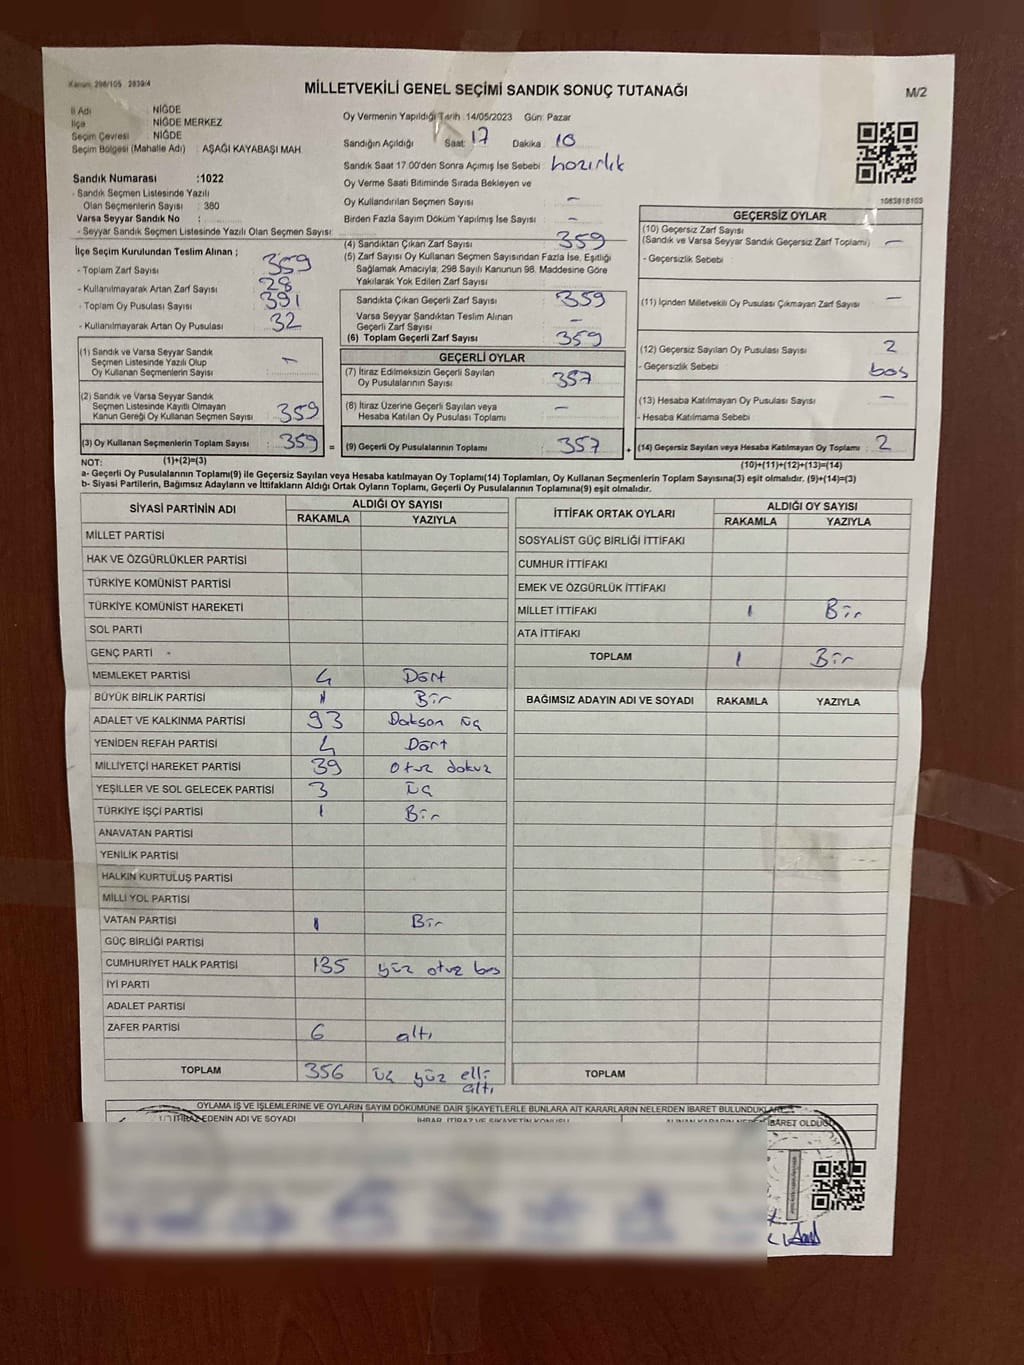 Kanun: 298/105 2839/4
MİLLETVEKİLİ GENEL SEÇİMİ SANDIK SONUÇ TUTANAĞI
M/2
İl Adı : NİĞDE
İlçe : NİĞDE MERKEZ
Seçim Çevresi : NİĞDE
Seçim Bölgesi (Mahalle Adı) : AŞAĞI KAYABAŞI MAH.
Sandık Numarası :1022
- Sandık Seçmen Listesinde Yazılı
Olan Seçmenlerin Sayısı : 380
Varsa Seyyar Sandık No :
- Seyyar Sandık Seçmen Listesinde Yazılı Olan Seçmen Sayısı:
Oy Vermenin Yapıldığı Tarih :14/05/2023 Gün: Pazar
Sandığın Açıldığı Saat: 17 Dakika 10
Sandık Saat 17.00'den Sonra Açımış İse Sebebi : hazırlık
Oy Verme Saati Bitiminde Sırada Bekleyen ve
Oy Kullandırılan Seçmen Sayısı : -
Birden Fazla Sayım Döküm Yapılmış İse Sayısı : -
1083818103
İlçe Seçim Kurulundan Teslim Alınan ;
- Toplam Zarf Sayısı : 359
- Kullanılmayarak Artan Zarf Sayısı : 28
- Toplam Oy Pusulası Sayısı : 391
- Kullanılmayarak Artan Oy Pusulası : 32
(1) Sandık ve Varsa Seyyar Sandık
Seçmen Listesinde Yazılı Olup
Oy Kullanan Seçmenlerin Sayısı : -
(2) Sandık ve Varsa Seyyar Sandık
Seçmen Listesinde Kayıtlı Olmayan
Kanun Gereği Oy Kullanan Seçmen Sayısı : 359
(3) Oy Kullanan Seçmenlerin Toplam Sayısı : 359
(4) Sandıktan Çıkan Zarf Sayısı : 359
(5) Zarf Sayısı Oy Kullanan Seçmen Sayısından Fazla İse, Eşitliği
Sağlamak Amacıyla, 298 Sayılı Kanunun 98. Maddesine Göre
Yakılarak Yok Edilen Zarf Sayısı :
Sandıkta Çıkan Geçerli Zarf Sayısı : 359
Varsa Seyyar Sandıktan Teslim Alınan
Geçerli Zarf Sayısı : -
(6) Toplam Geçerli Zarf Sayısı : 359
GEÇERLİ OYLAR
(7) İtiraz Edilmeksizin Geçerli Sayılan
Oy Pusulalarının Sayısı : 357
(8) İtiraz Üzerine Geçerli Sayılan veya
Hesaba Katılan Oy Pusulası Toplamı : -
= (9) Geçerli Oy Pusulalarının Toplamı : 357
GEÇERSİZ OYLAR
(10) Geçersiz Zarf Sayısı
(Sandık ve Varsa Seyyar Sandık Geçersiz Zarf Toplamı) : -
- Geçersizlik Sebebi :
(11) İçinden Milletvekili Oy Pusulası Çıkmayan Zarf Sayısı : -
(12) Geçersiz Sayılan Oy Pusulası Sayısı : 2
- Geçersizlik Sebebi : boş
(13) Hesaba Katılmayan Oy Pusulası Sayısı : -
- Hesaba Katılmama Sebebi :
+ (14) Geçersiz Sayılan veya Hesaba Katılmayan Oy Toplamı : 2
NOT: (1)+(2)=(3)
(10)+(11)+(12)+(13)=(14)
a- Geçerli Oy Pusulalarının Toplamı(9) ile Geçersiz Sayılan veya Hesaba katılmayan Oy Toplamı(14) Toplamları, Oy Kullanan Seçmenlerin Toplam Sayısına(3) eşit olmalıdır. (9)+(14)=(3)
b- Siyasi Partilerin, Bağımsız Adayların ve İttifakların Aldığı Ortak Oyların Toplamı, Geçerli Oy Pusulalarının Toplamına(9) eşit olmalıdır.
SİYASİ PARTİNİN ADI ALDIĞI OY SAYISI
RAKAMLA YAZIYLA
MİLLET PARTİSİ
HAK VE ÖZGÜRLÜKLER PARTİSİ
TÜRKİYE KOMÜNİST PARTİSİ
TÜRKİYE KOMÜNİST HAREKETİ
SOL PARTİ
GENÇ PARTİ
MEMLEKET PARTİSİ 4 Dört
BÜYÜK BİRLİK PARTİSİ 1 Bir
ADALET VE KALKINMA PARTİSİ 93 Doksan üç
YENİDEN REFAH PARTİSİ 4 Dört
MİLLİYETÇİ HAREKET PARTİSİ 39 otuz dokuz
YEŞİLLER VE SOL GELECEK PARTİSİ 3 üç
TÜRKİYE İŞÇİ PARTİSİ 1 Bir
ANAVATAN PARTİSİ
YENİLİK PARTİSİ
HALKIN KURTULUŞ PARTİSİ
MİLLİ YOL PARTİSİ
VATAN PARTİSİ 1 Bir
GÜÇ BİRLİĞİ PARTİSİ
CUMHURİYET HALK PARTİSİ 135 yüz otuz beş
İYİ PARTİ
ADALET PARTİSİ
ZAFER PARTİSİ 6 altı
TOPLAM 356 üç yüz elli
altı
İTTİFAK ORTAK OYLARI ALDIĞI OY SAYISI
RAKAMLA YAZIYLA
SOSYALİST GÜÇ BİRLİĞİ İTTİFAKI
CUMHUR İTTİFAKI
EMEK VE ÖZGÜRLÜK İTTİFAKI
MİLLET İTTİFAKI 1 Bir
ATA İTTİFAKI
TOPLAM 1 Bir
BAĞIMSIZ ADAYIN ADI VE SOYADI RAKAMLA YAZIYLA
TOPLAM
OYLAMA İŞ VE İŞLEMLERİNE VE OYLARIN SAYIM DÖKÜMÜNE DAİR ŞİKAYETLERLE BUNLARA AİT KARARLARIN NELERDEN İBARET BULUNDUKLARI
EDENİN ADI VE SOYADI
İBARET OLDUĞU